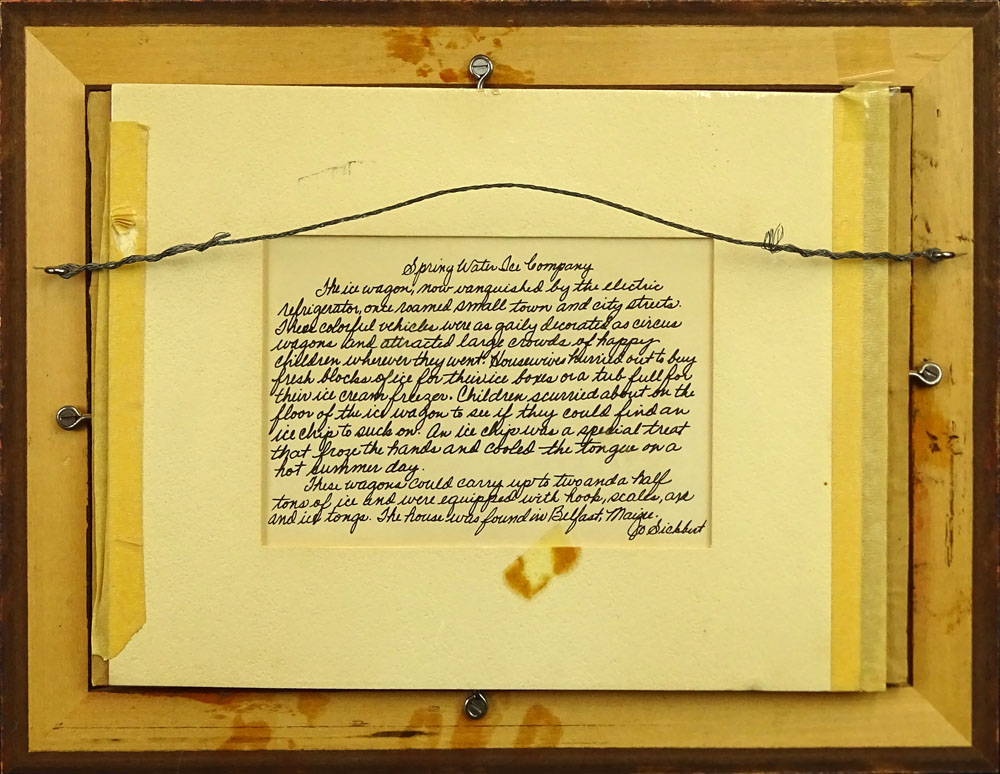 Spring Water Ice Company
The ice wagon, now vanquished by the electric
refrigerator, once roamed small town and city streets.
These colorful vehicles were as gaily decorated as circus
wagons and attracted large crowds of happy
children wherever they went. Housewives hurried out to buy
fresh blocks of ice for their ice boxes or a tub full for
their ice cream freezer. Children scurried about on the
floor of the ice wagon to see if they could find an
ice chip to suck on. An ice chip was a special treat
that froze the hands and cooled the tongue on a
hot summer day.
These wagons could carry up to two and a half
tons of ice and were equipped with hook, scales, axe
and ice tongs. The house was found in Belfast, Maine.